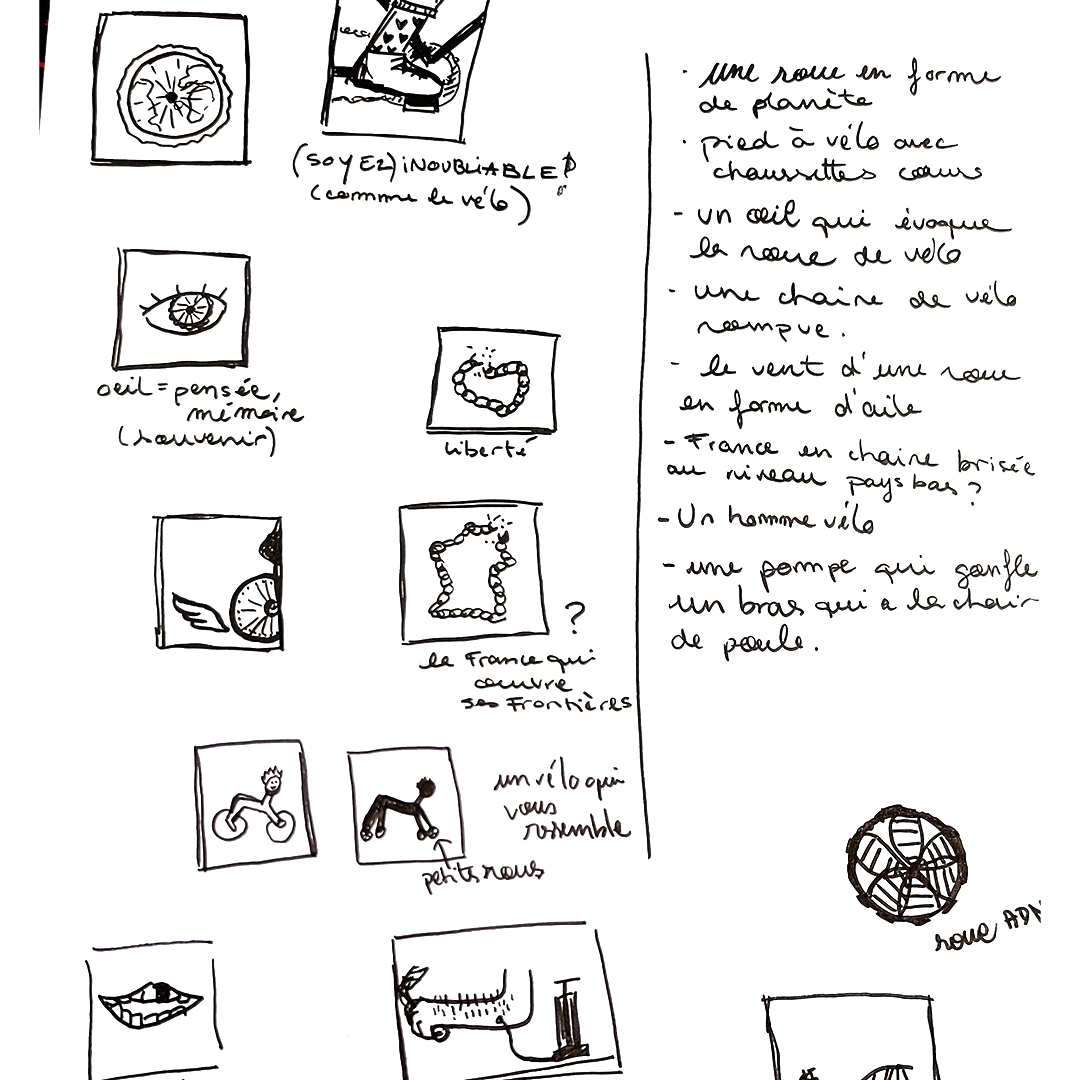 (SOYEZ) iNOUBLiABLE!
(comme le vélo)
oeil = pensée,
mémoire
(souvenir)
liberté
?
la France qui
oeuvre
ses Frontières
un vélo qui
vous
resemble
petits roues
· une roue en forme
de planète
· pied à vélo avec
chaussettes cœurs
- un œil qui évoque
la roue de vélo
- une chaine de vélo
rompue.
- le vent d'une roue
en forme d'aile
- France en chaine brisée
au niveau pays bas ?
- Un homme vélo
- une pompe qui gonfle
un bras qui a la chair
de poule.
roue ADN